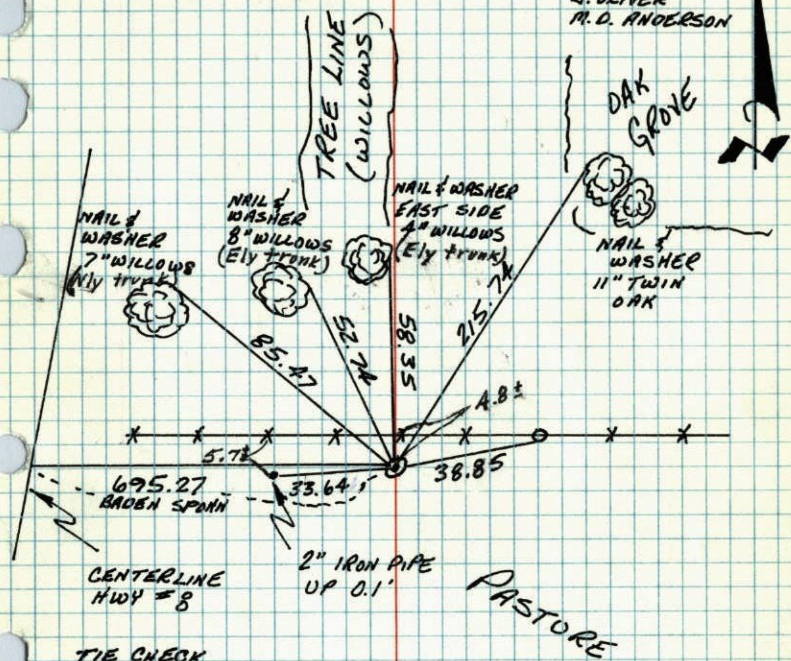 M.D. ANDERSON
TREE LINE
(WILLOWS)
OAK
GROVE
NAIL &
WASHER
7" WILLOWS
(Nly trunk)
NAIL &
WASHER
8" WILLOWS
(Ely trunk)
NAIL & WASHER
EAST SIDE
4" WILLOWS
(Ely trunk)
NAIL &
WASHER
11" TWIN
OAK
85.47
52.74
58.35
215.74
4.8±
5.7±
695.27
33.64
38.85
CENTERLINE
HWY #8
2" IRON PIPE
UP 0.1'
PASTURE
TIE CHECK